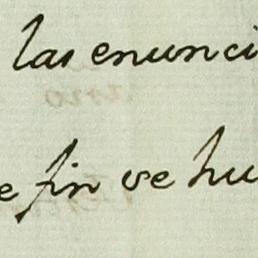 las enunci
e fin se hu